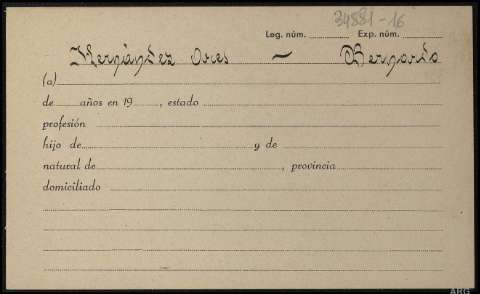 34881-16
Leg. núm. Exp. núm.
Hernández Ores — Bernardo
(a)
de años en 19 , estado
profesión
hijo de y de
natural de , provincia
domiciliado
ARG